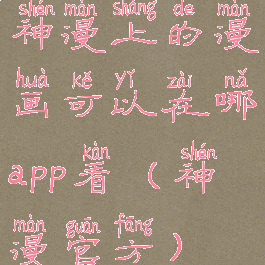 shén màn shàng de màn
神漫上的漫
huà kě yǐ zài nǎ
画可以在哪
kàn shén
app看（神
màn guān fāng
漫官方）